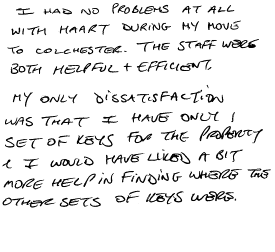 I HAD NO PROBLEMS AT ALL
WITH HAART DURING MY MOVE
TO COLCHESTER. THE STAFF WERE
BOTH HELPFUL + EFFICIENT.
MY ONLY DISSATISFACTION
WAS THAT I HAVE ONLY 1
SET OF KEYS FOR THE PROPERTY
& I WOULD HAVE LIKED A BIT
MORE HELP IN FINDING WHERE THE
OTHER SETS OF KEYS WERE.